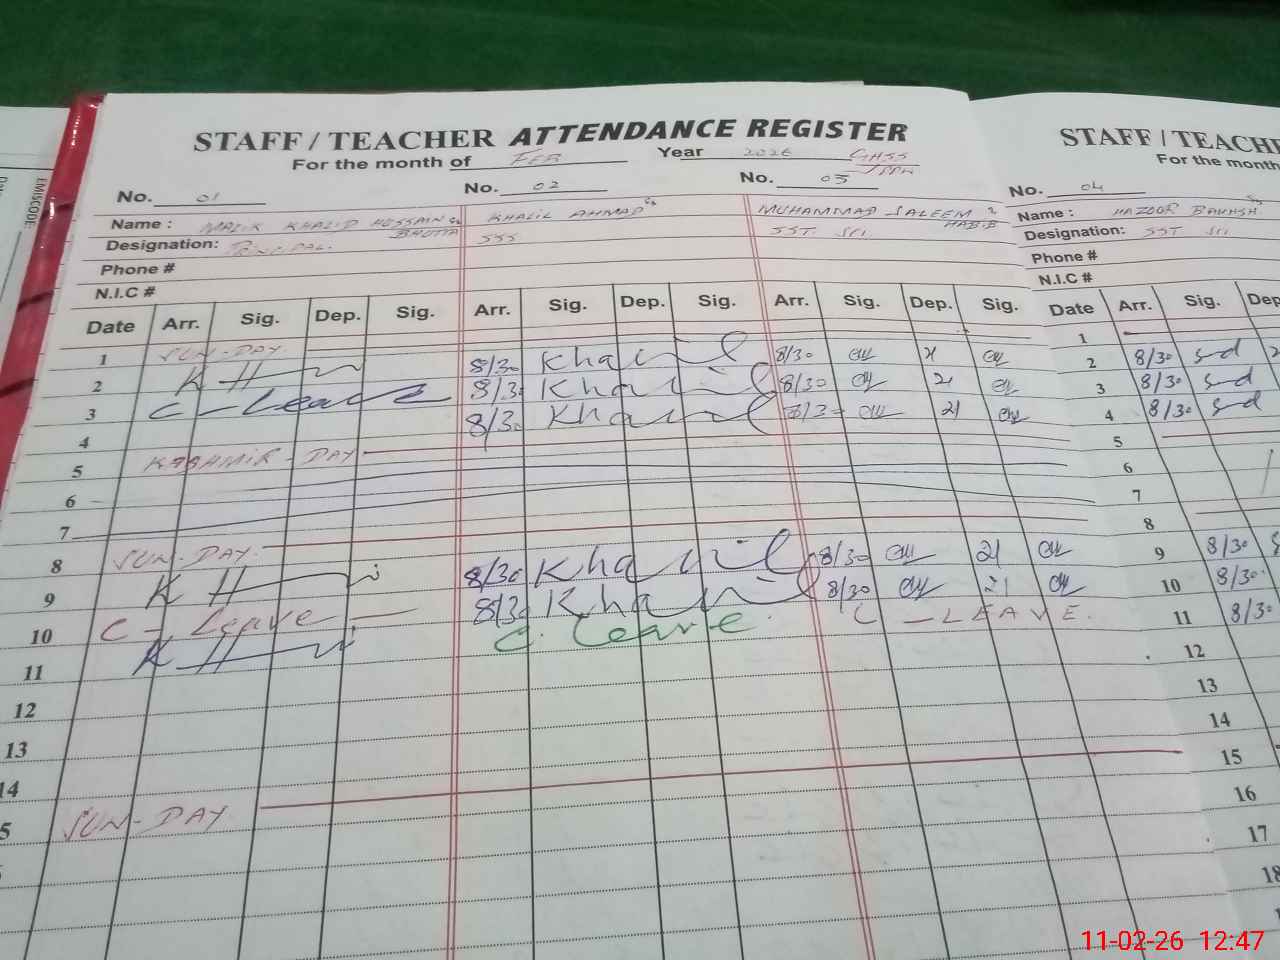 STAFF / TEACHER ATTENDANCE REGISTER
For the month of FEB Year 2026 GHSS
No. 01 No. 02 No. 03
Name : MALIK KHALID HUSSAIN BHUTTA KHALIL AHMAD MUHAMMAD SALEEM HABIB
Designation: PRINCIPAL SSS SST Sci
Phone #
N.I.C #
Date Arr. Sig. Dep. Sig. Arr. Sig. Dep. Sig. Arr. Sig. Dep. Sig.
1 SUN-DAY
2 8/30 Khalil 8/30 21
3 C-Leave 8/30 Khalil 8/30 21
4 8/30 Khalil 8/30 21
5 KASHMIR-DAY
6
7
8 SUN-DAY
9 8/30 Khalil 8/30 21
10 C-Leave 8/30 Khalil 8/30 21
11 C. Leave C-LEAVE.
12
13
14
5 SUN-DAY
STAFF / TEACH
For the month
No. 04
Name : HAZOOR BAKHSH
Designation: SST Sci
Phone #
N.I.C #
Date Arr. Sig. Dep
1
2 8/30
3 8/30
4 8/30
5
6
7
8
9 8/30
10 8/30
11 8/30
12
13
14
15
16
17
18
EMISCODE
11-02-26 12:47